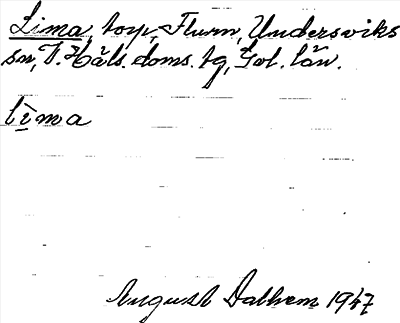 Lima, torp, Flurn, Undersviks
sn, V. Häls. doms. tg, Gvl. län.
lima
August Dalhem 1947